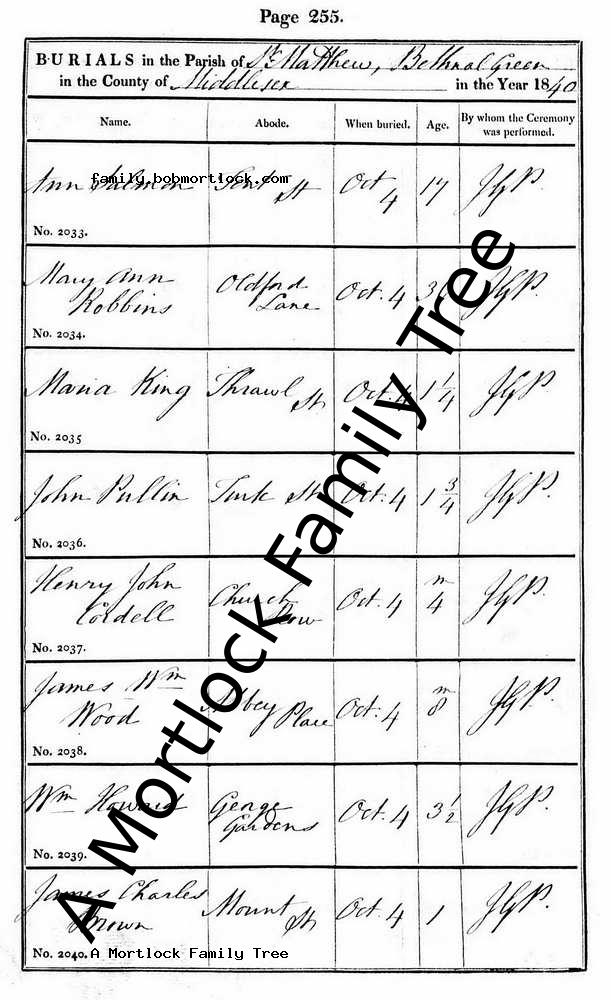 Page 255.
BURIALS in the Parish of St Matthew, Bethnal Green
in the County of Middlesex in the Year 1840
Name. Abode. When buried. Age. By whom the Ceremony was performed.
family.bobmortlock.com
Ann Salmon St Oct 4 17 JGP.
No. 2033.
Mary Ann Robbins Oldford Lane Oct. 4 JGP.
No. 2034.
Maria King Thrawl St Oct. 4 1 1/4 JGP.
No. 2035
John Pullin Turk St Oct. 4 1 3/4 JGP.
No. 2036.
Henry John Cordell Church Row Oct. 4 4 m JGP.
No. 2037.
James Wm Wood Abbey Place Oct. 4 8 m JGP.
No. 2038.
Wm Howard George Gardens Oct. 4 3 1/2 JGP.
No. 2039.
James Charles Brown Mount St Oct. 4 1 JGP.
No. 2040.
A Mortlock Family Tree
A Mortlock Family Tree